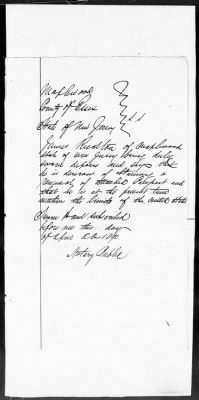 Maplewood
County of Essex
State of New Jersey } SS
James Ricalton of Maplewood
State of New Jersey being duly
sworn deposes and says that
he is desirous of obtaining a
of attached Passport and
that he is at the present time
within the limits of the United States
Sworn to and subscribed
before me this day
of April A.D. 1890
Notary Public